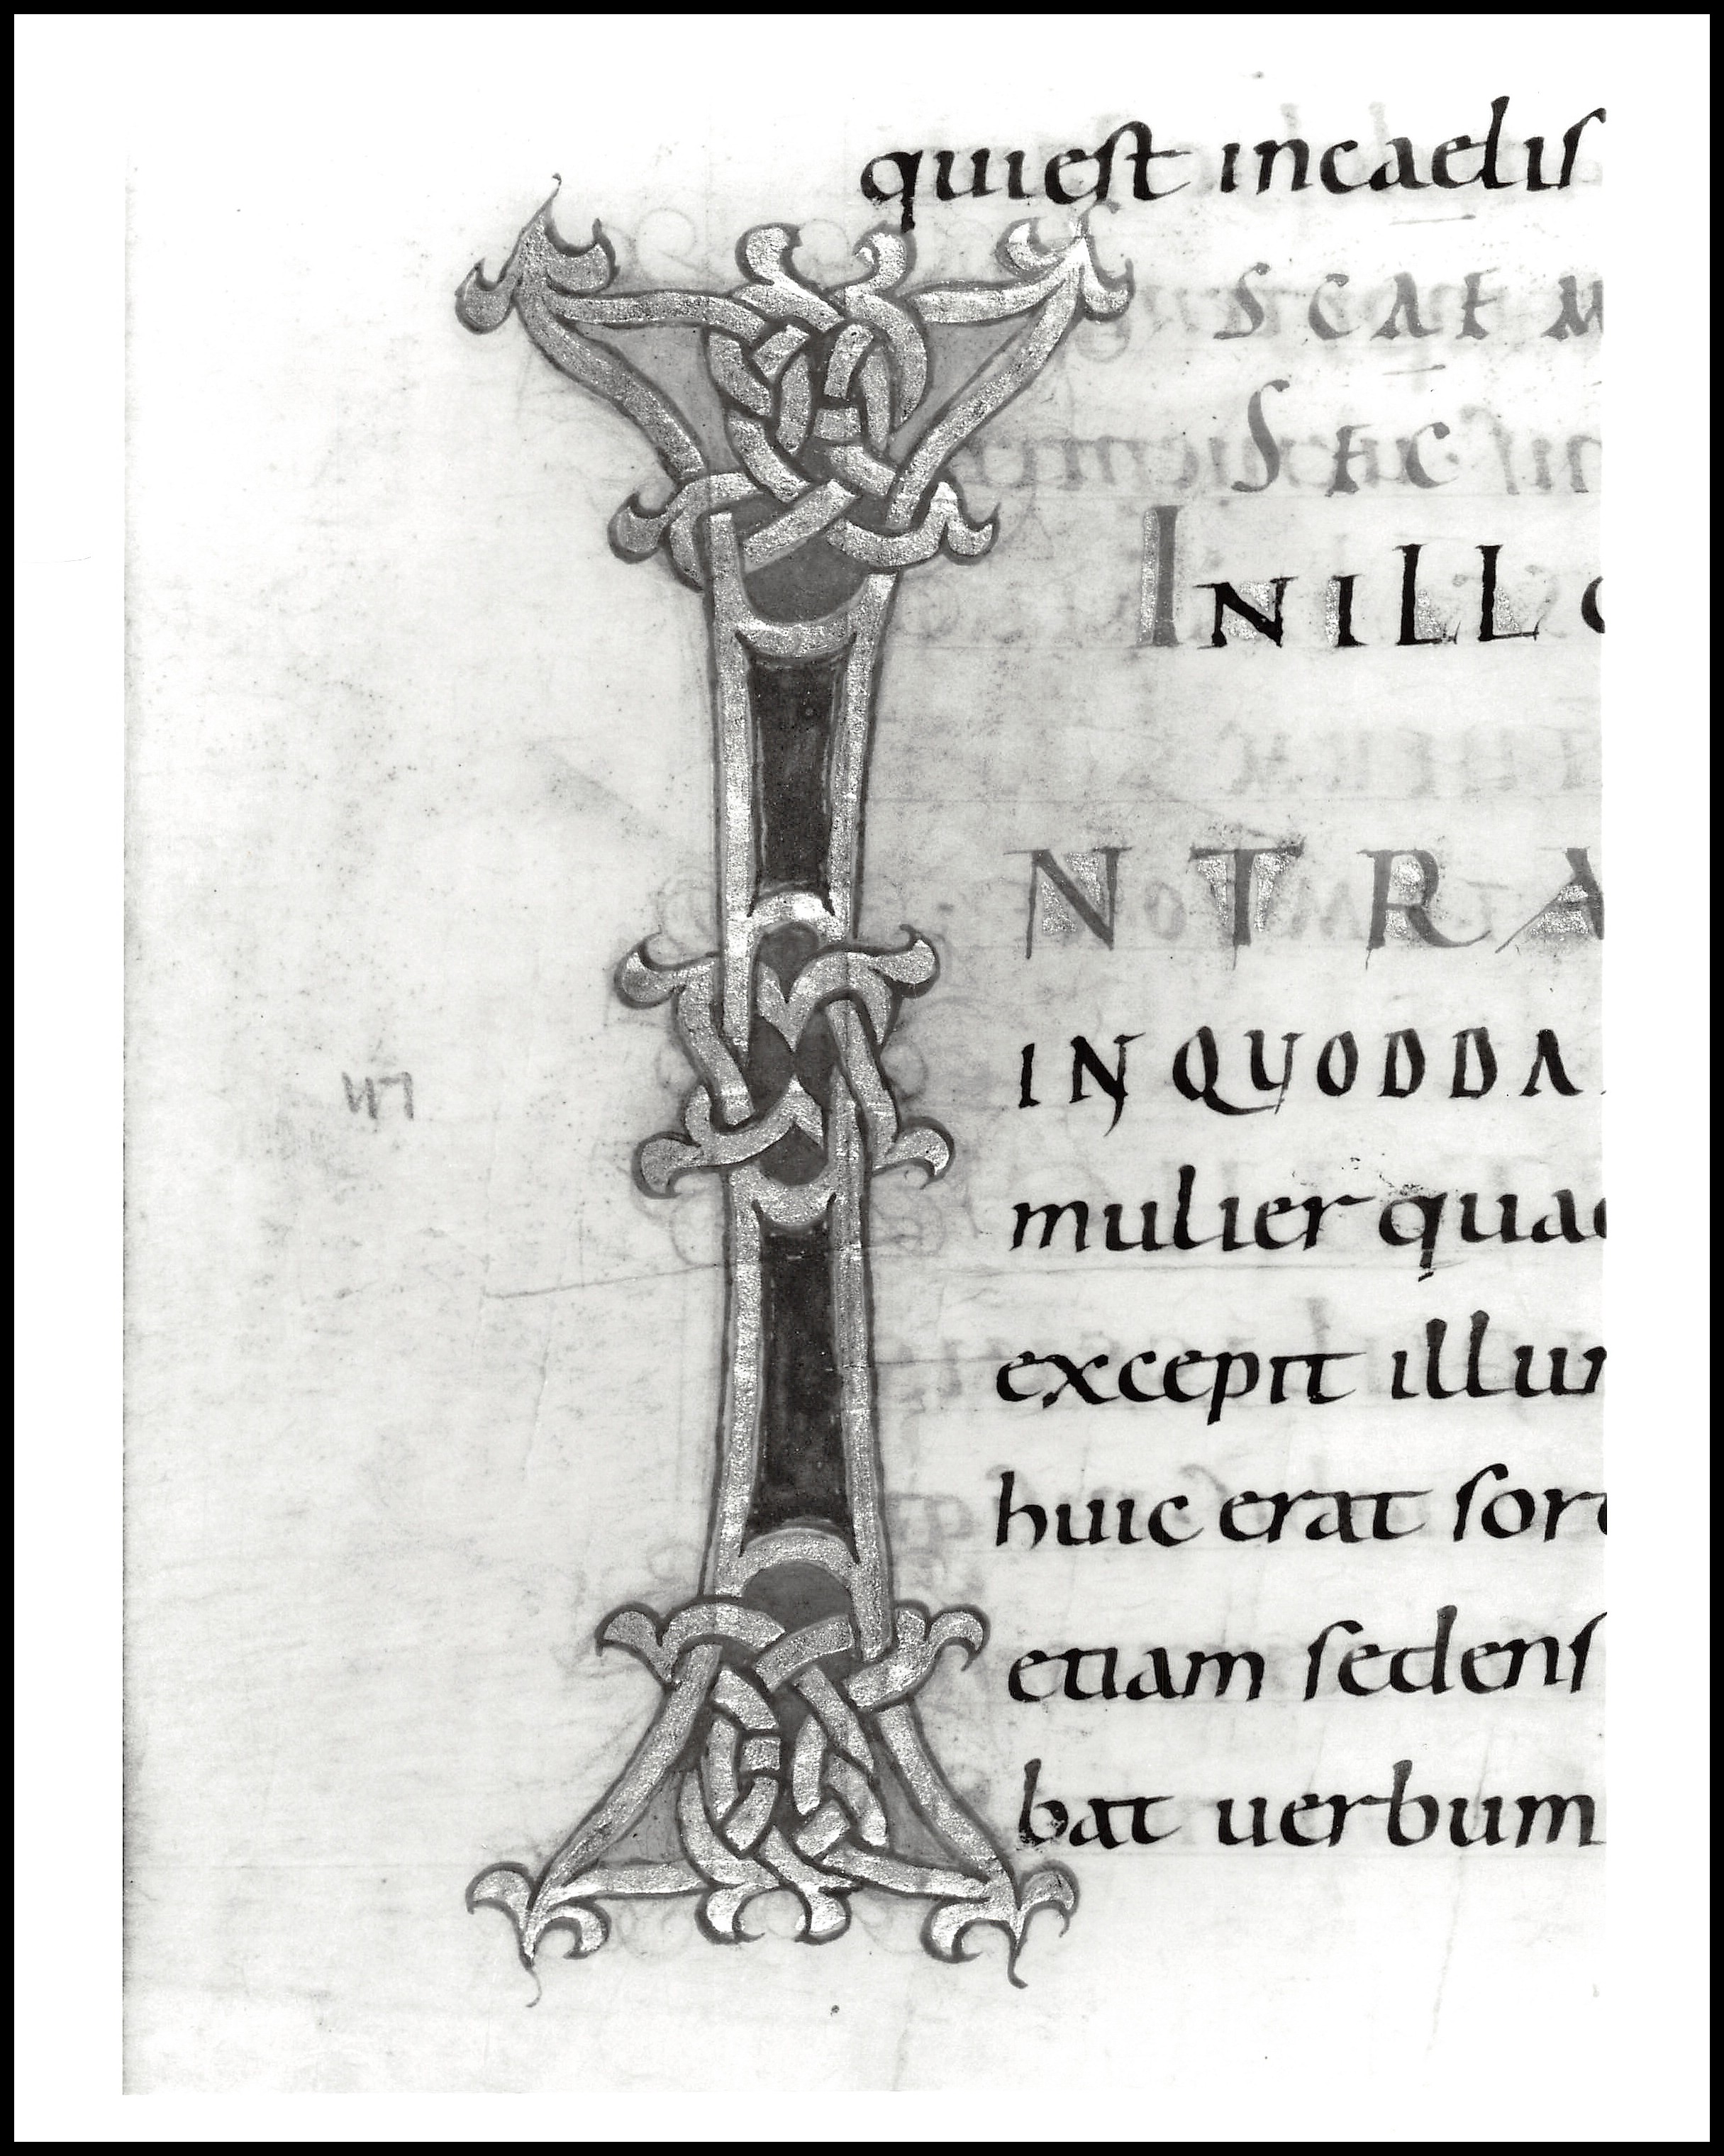 quiest incaelis
SCAE M
SEC
INILLO
INTRA
INQUODDA
mulier quae
excepit illum
huic erat soro
etiam sedens
bat uerbum